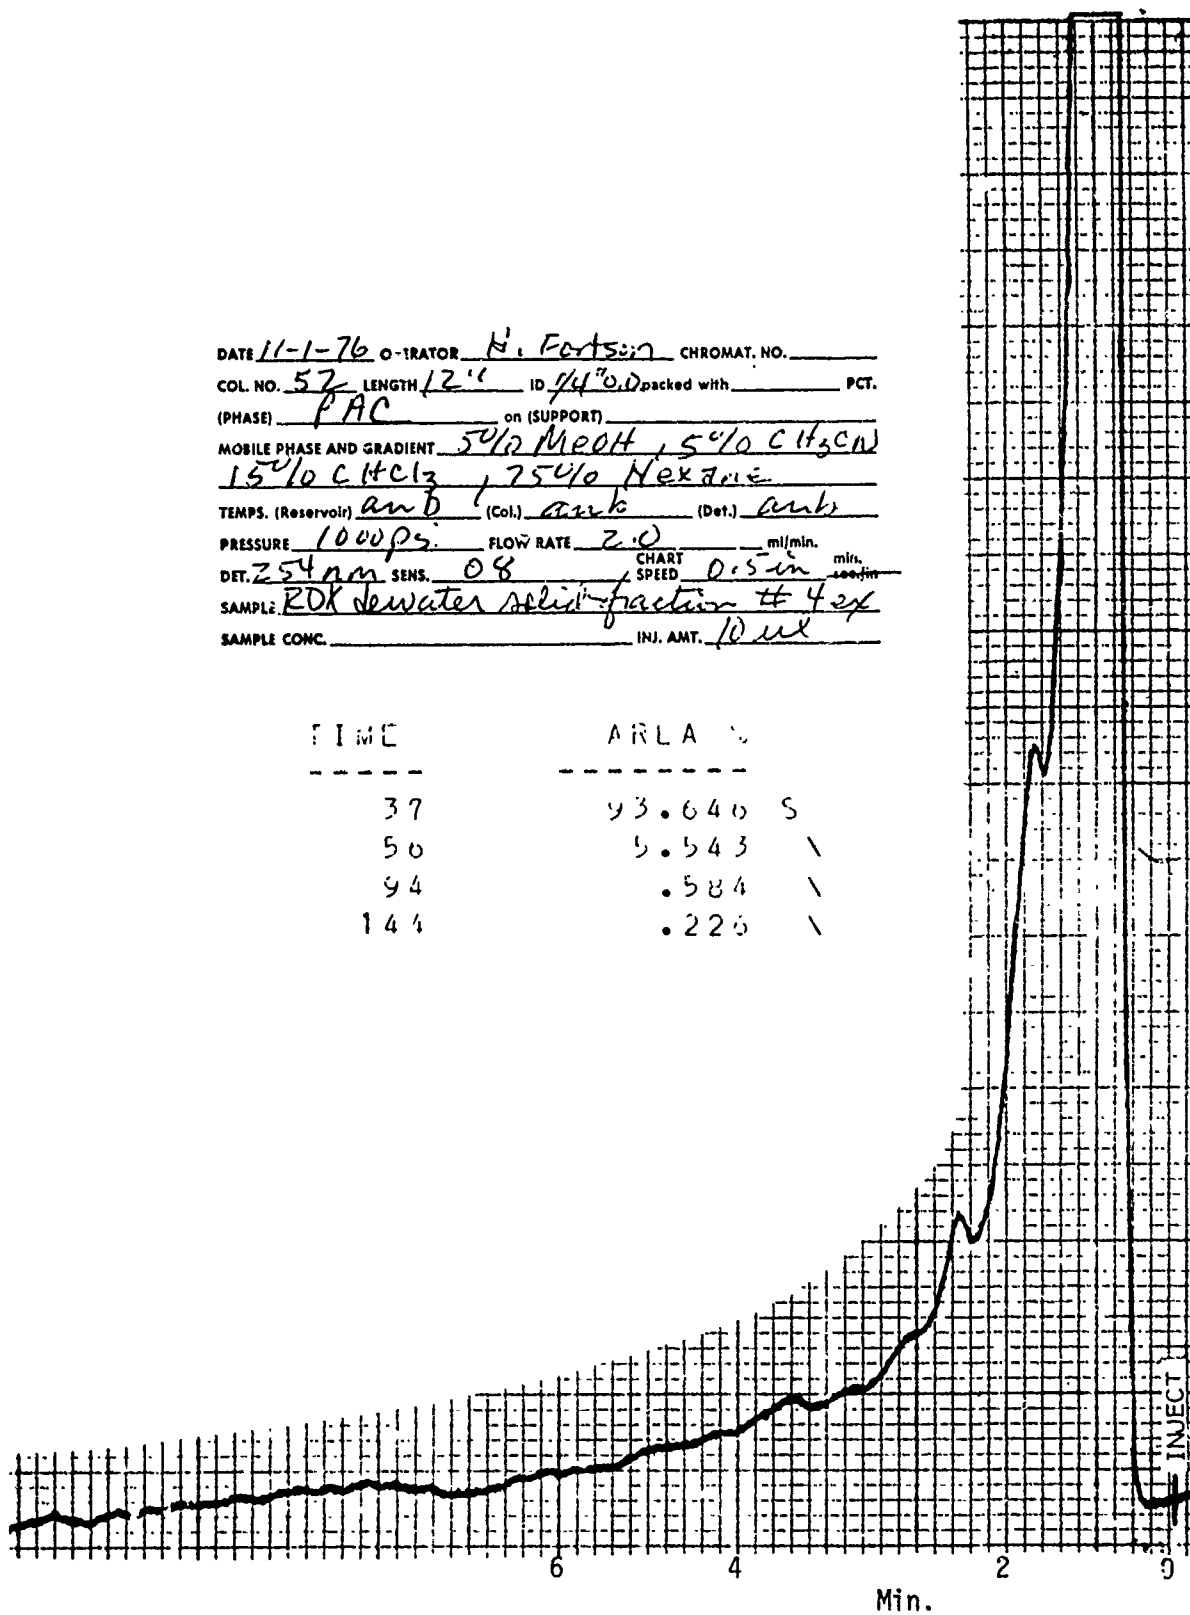 DATE 11-1-76 O-:RATOR N. Fortson CHROMAT. NO.
COL. NO. 52 LENGTH 12" ID 1/4" O.D. packed with PCT.
(PHASE) PAC on (SUPPORT)
MOBILE PHASE AND GRADIENT 5% MeOH, 5% CH3CN
15% CHCl3, 75% Hexane
TEMPS. (Reservoir) amb (Col.) amb (Det.) amb
PRESSURE 1000 psi FLOW RATE 2.0 ml/min.
DET. 254 nm SENS. 08 CHART SPEED 0.5 in min. sec./in
SAMPLE RDX dewater solid fraction # 4 ex
SAMPLE CONC. INJ. AMT. 10
TIME AREA %
37 93.646 S
56 5.543 \
94 .584 \
144 .226 \
INJECT
6 4 2 0
Min.